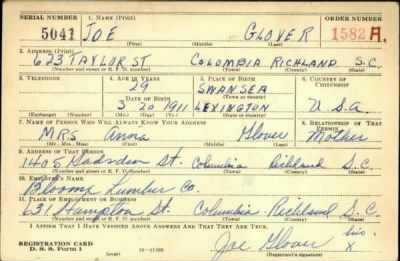 SERIAL NUMBER 1. NAME (Print) ORDER NUMBER
5041 JOE GLOVER 1582 A.
(First) (Middle) (Last)
2. ADDRESS (Print)
623 TAYLOR ST COLOMBIA RICHLAND S.C.
(Number and street or R. F. D. number) (Town) (County) (State)
3. TELEPHONE 4. AGE IN YEARS 5. PLACE OF BIRTH 6. COUNTRY OF CITIZENSHIP
29 SWANSEA
DATE OF BIRTH (Town or county)
3 20 1911 LEXINGTON U.S.A
(Exchange) (Number) (Mo.) (Day) (Yr.) (State or country)
7. NAME OF PERSON WHO WILL ALWAYS KNOW YOUR ADDRESS 8. RELATIONSHIP OF THAT PERSON
MRS Anna Glover Mother
(Mr., Mrs., Miss) (First) (Middle) (Last)
9. ADDRESS OF THAT PERSON
1405 Gadsden St. Columbia Richland S.C.
(Number and street or R. F. D. number) (Town) (County) (State)
10. EMPLOYER'S NAME
Lumber Co.
11. PLACE OF EMPLOYMENT OR BUSINESS
631 Hampton St. Columbia Richland S.C.
(Number and street or R. F. D. number) (Town) (County) (State)
I AFFIRM THAT I HAVE VERIFIED ABOVE ANSWERS AND THAT THEY ARE TRUE.
REGISTRATION CARD
D. S. S. Form 1 (over) 16—17105 Joe Glover X
(Registrant's signature)